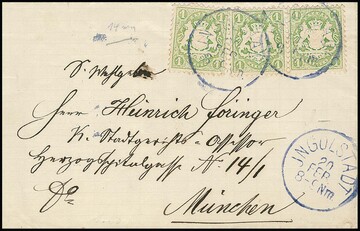 1 1 1 1 1 1
S. Wohlgeb
Herrn Heinrich Föringer
K. Stadtgerichts-Assessor
Herzogspitalgasse No 14/1
München
INGOLSTADT
20
FEB